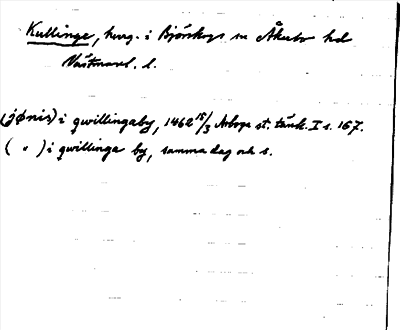 Kullinge, hmg. i Björskogs sn Åkerbo hd
Västmanl. l.
(jønis) i qwillingaby, 1462 15/3 Arboga st. tänk. I s. 167.
( " ) i qwillinga by, samma dag och s.